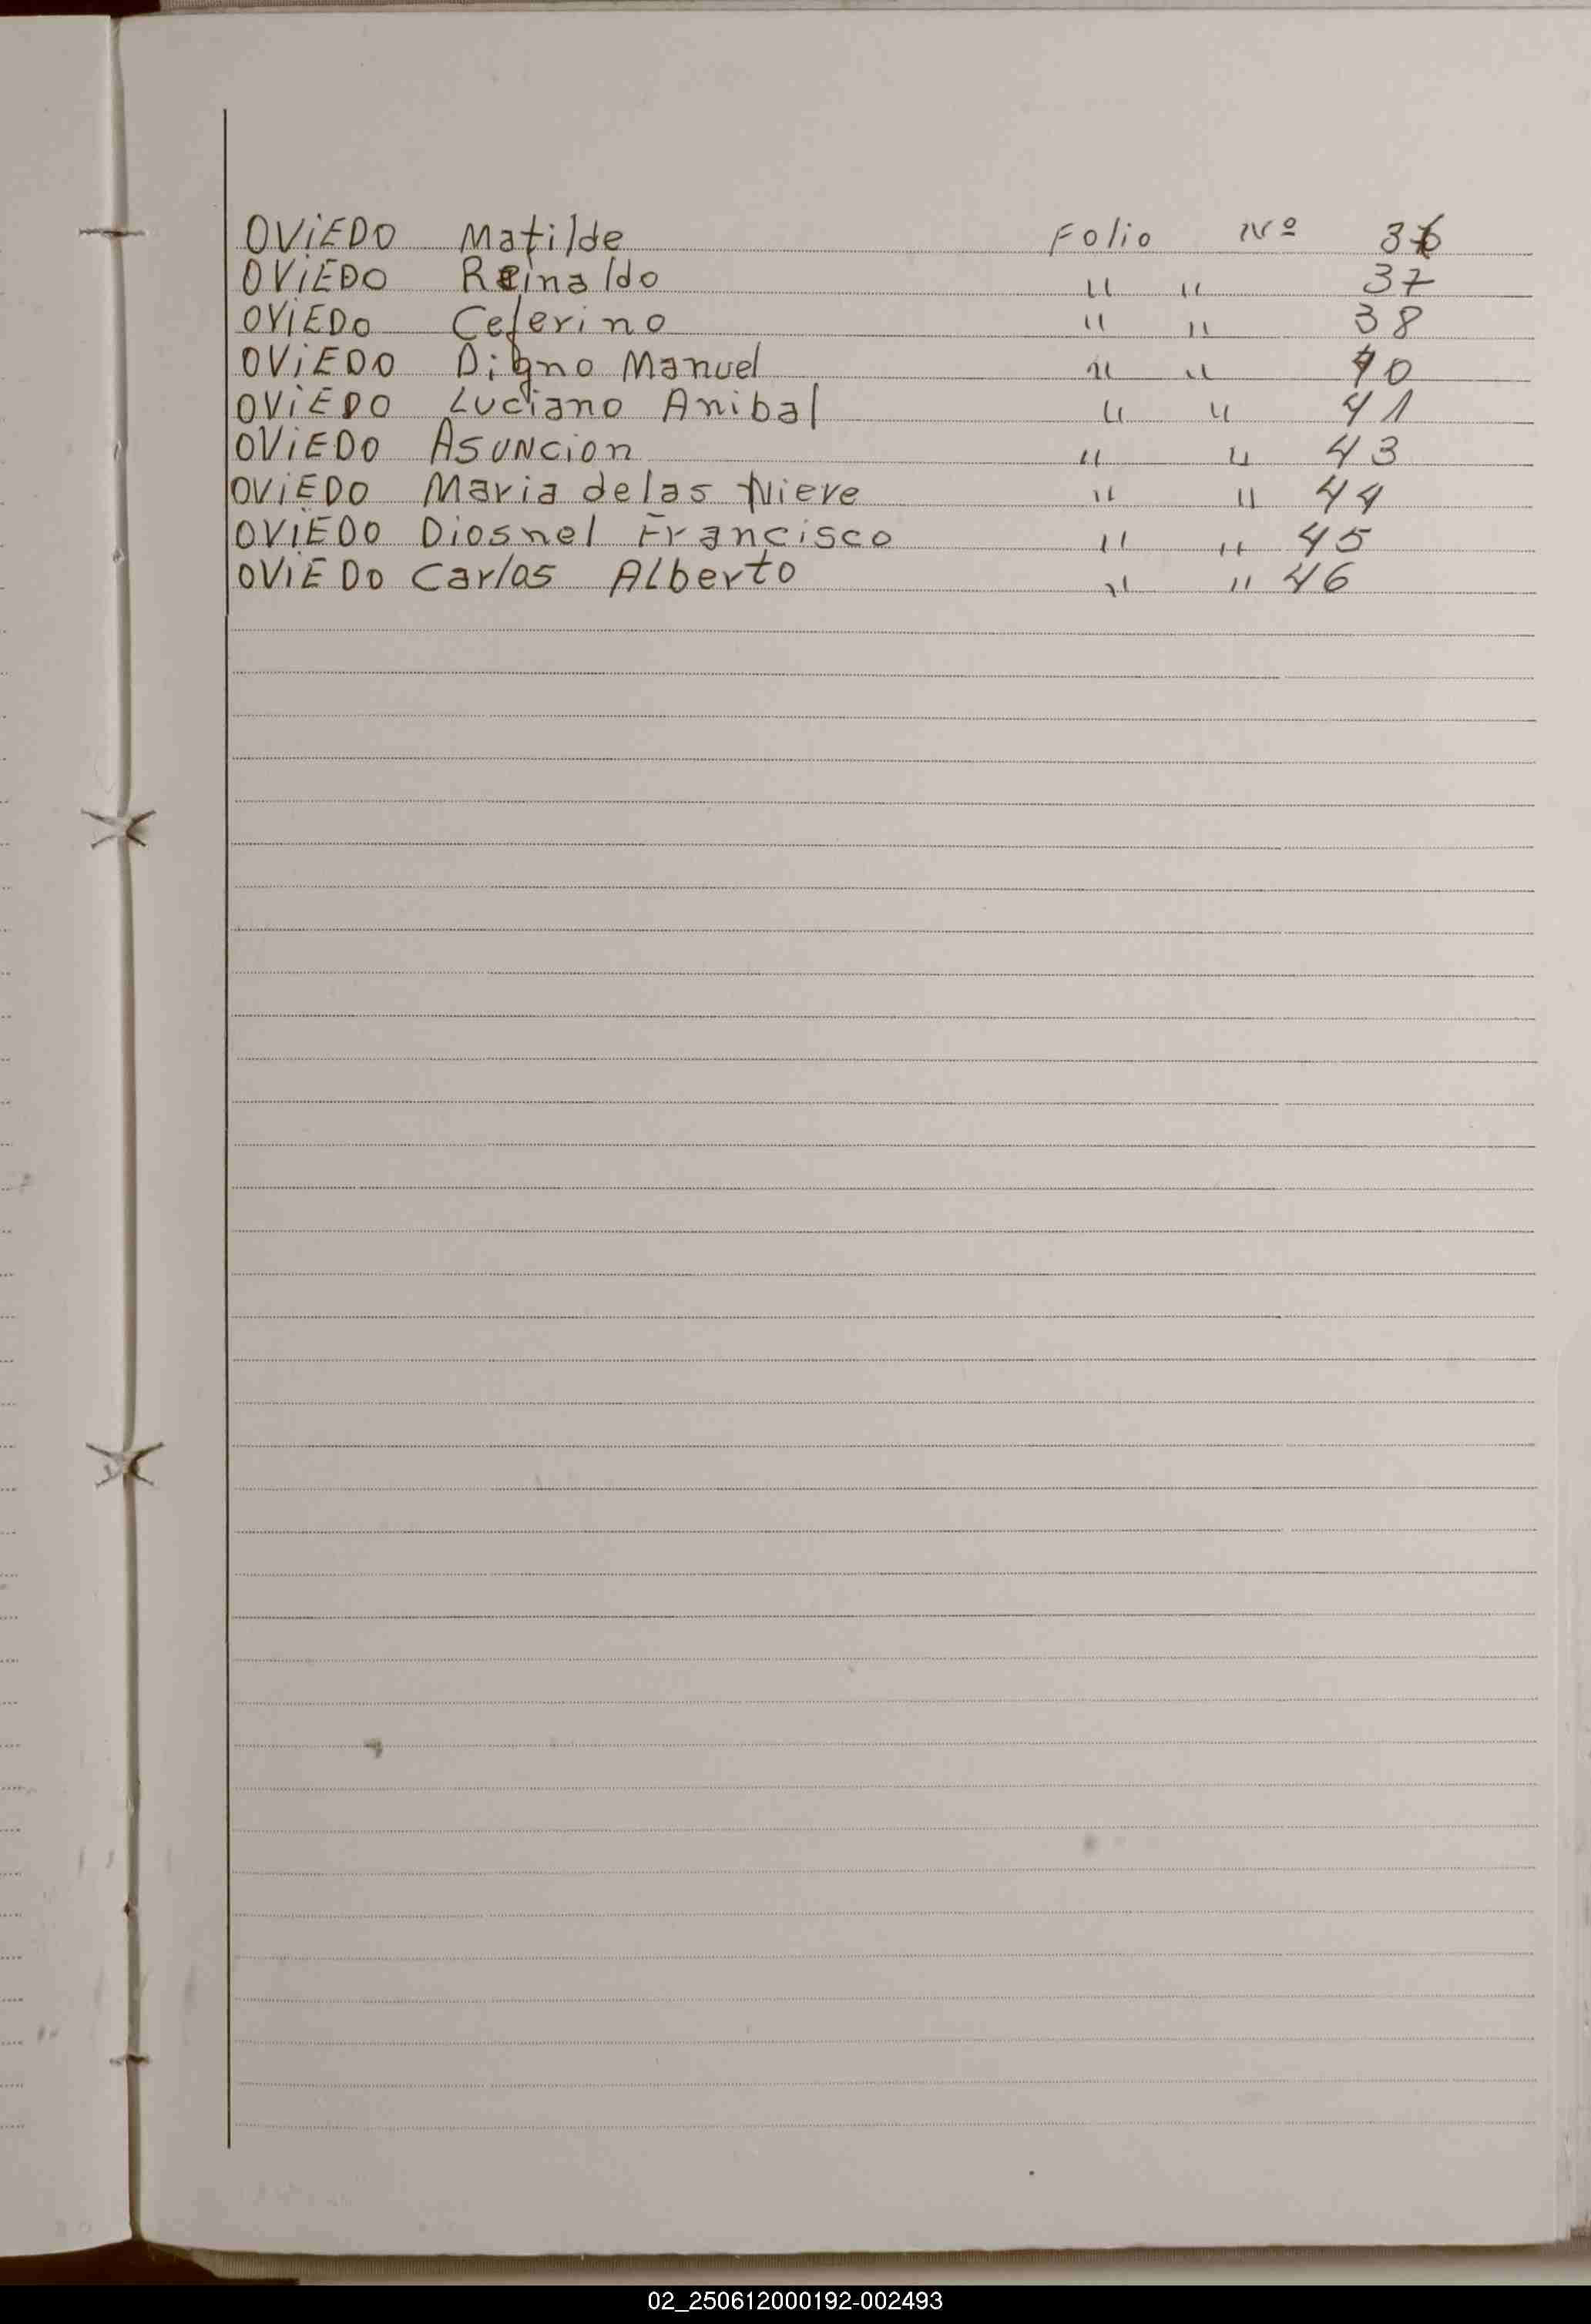 OViEDO Matilde Folio Nº 36
OViEDO Reinaldo " " 37
OViEDO Ceferino " " 38
OViEDO Digno Manuel " " 40
OViEDO Luciano Anibal " " 41
OViEDO Asuncion " " 43
OViEDO Maria delas Nieve " " 44
OViEDO Diosnel Francisco " " 45
OViEDO Carlos Alberto " " 46
02_250612000192-002493